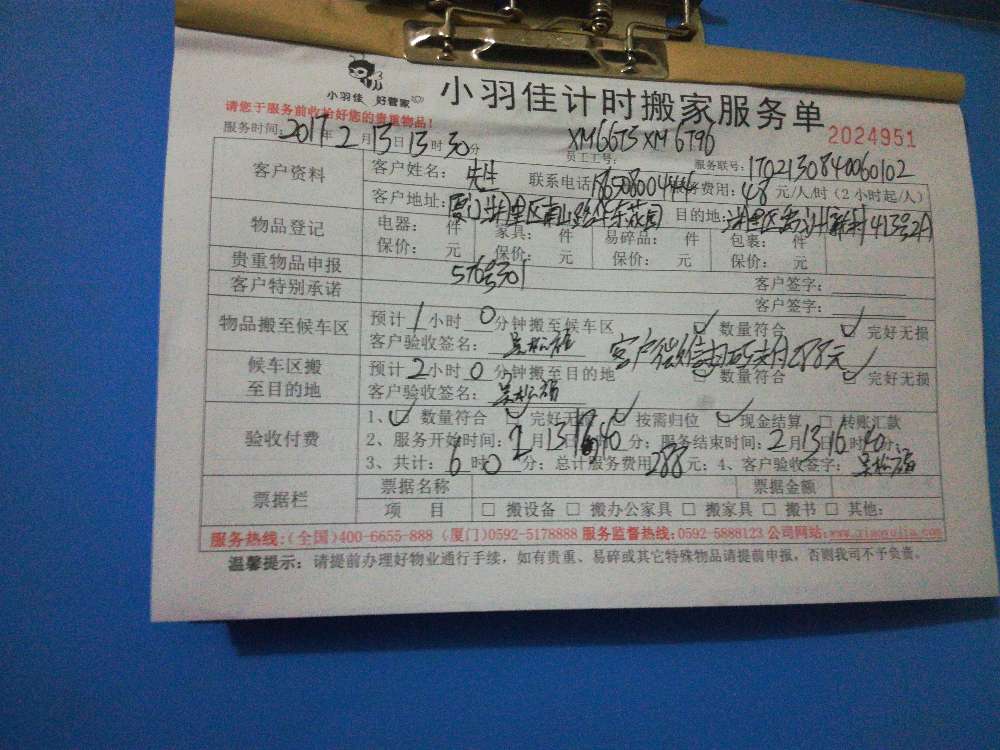 小羽佳 好管家
小羽佳计时搬家服务单
请您于服务前收拾好您的贵重物品！
2024951
服务时间：2017年2月13日13时30分
XM6675 XM6796
员工工号：
服务联号：1702130840060102
客户资料
客户姓名：先生
联系电话
费用：48元/人/时（2小时起/人）
客户地址：厦门 集美区南山路华东花园
目的地：集美区 413号2A
物品登记
电器： 件 家具： 件 易碎品： 件 包裹： 件
保价： 元 保价： 元 保价： 元 保价： 元
贵重物品申报
576号301
客户签字：
客户特别承诺
客户签字：
物品搬至候车区
预计1小时0分钟搬至候车区
数量符合 完好无损
客户验收签名：
客户微信支付288元
候车区搬至目的地
预计2小时0分钟搬至目的地
数量符合 完好无损
客户验收签名：
验收付费
1、 数量符合 完好无损 按需归位 现金结算 转账汇款
2、服务开始时间：2月13日 40分；服务结束时间：2月13日16时40分；
3、共计：6时0分；总计服务费用288元；4、客户验收签字：
票据栏
票据名称 票据金额
项 目 搬设备 搬办公家具 搬家具 搬书 其他：
服务热线：（全国）400-6655-888（厦门）0592-5178888 服务监督热线：0592-5888123 公司网站：www.xiaoyujia.com
温馨提示：请提前办理好物业通行手续，如有贵重、易碎或其它特殊物品请提前申报，否则我司不予负责。